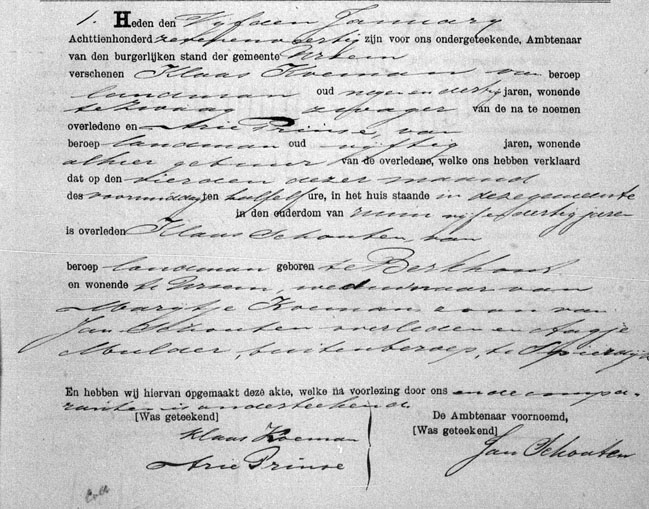 1. Heden den Vyfden January
Achttienhonderd zijn voor ons ondergeteekende, Ambtenaar
van den burgerlijken stand der gemeente Ursem
verschenen Klaas Koeman van beroep
landman oud negenendertig jaren, wonende
te Zwaag, zwager van de na te noemen
overledene en Arie Prinse, van
beroep landman oud vyftig jaren, wonende
alhier gebuur van de overledene, welke ons hebben verklaard
dat op den vierden dezer maand
des voormiddags ten half elf ure, in het huis staande in deze gemeente
in den ouderdom van ruim vyfendertig jaren
is overleden Klaas Schouten, van
beroep landman geboren te Berkhout
en wonende te Ursem, weduwnaar van
Marytje Koeman, zoon van
Jan Schouten overleden en Aafje
Mulder, buiten beroep, te Spierdijk
En hebben wij hiervan opgemaakt deze akte, welke na voorlezing door ons en de compa-
ranten is onderteekend.
[Was geteekend] De Ambtenaar voornoemd,
[Was geteekend]
Klaas Koeman
Arie Prinse
Jan Schouten